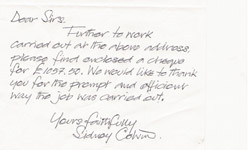 Dear Sirs.
Further to work
carried out at the above address,
please find enclosed a cheque
for £1057.50. We would like to thank
you for the prompt and efficient
way the job was carried out.
Yours faithfully
Sidney Colwin.